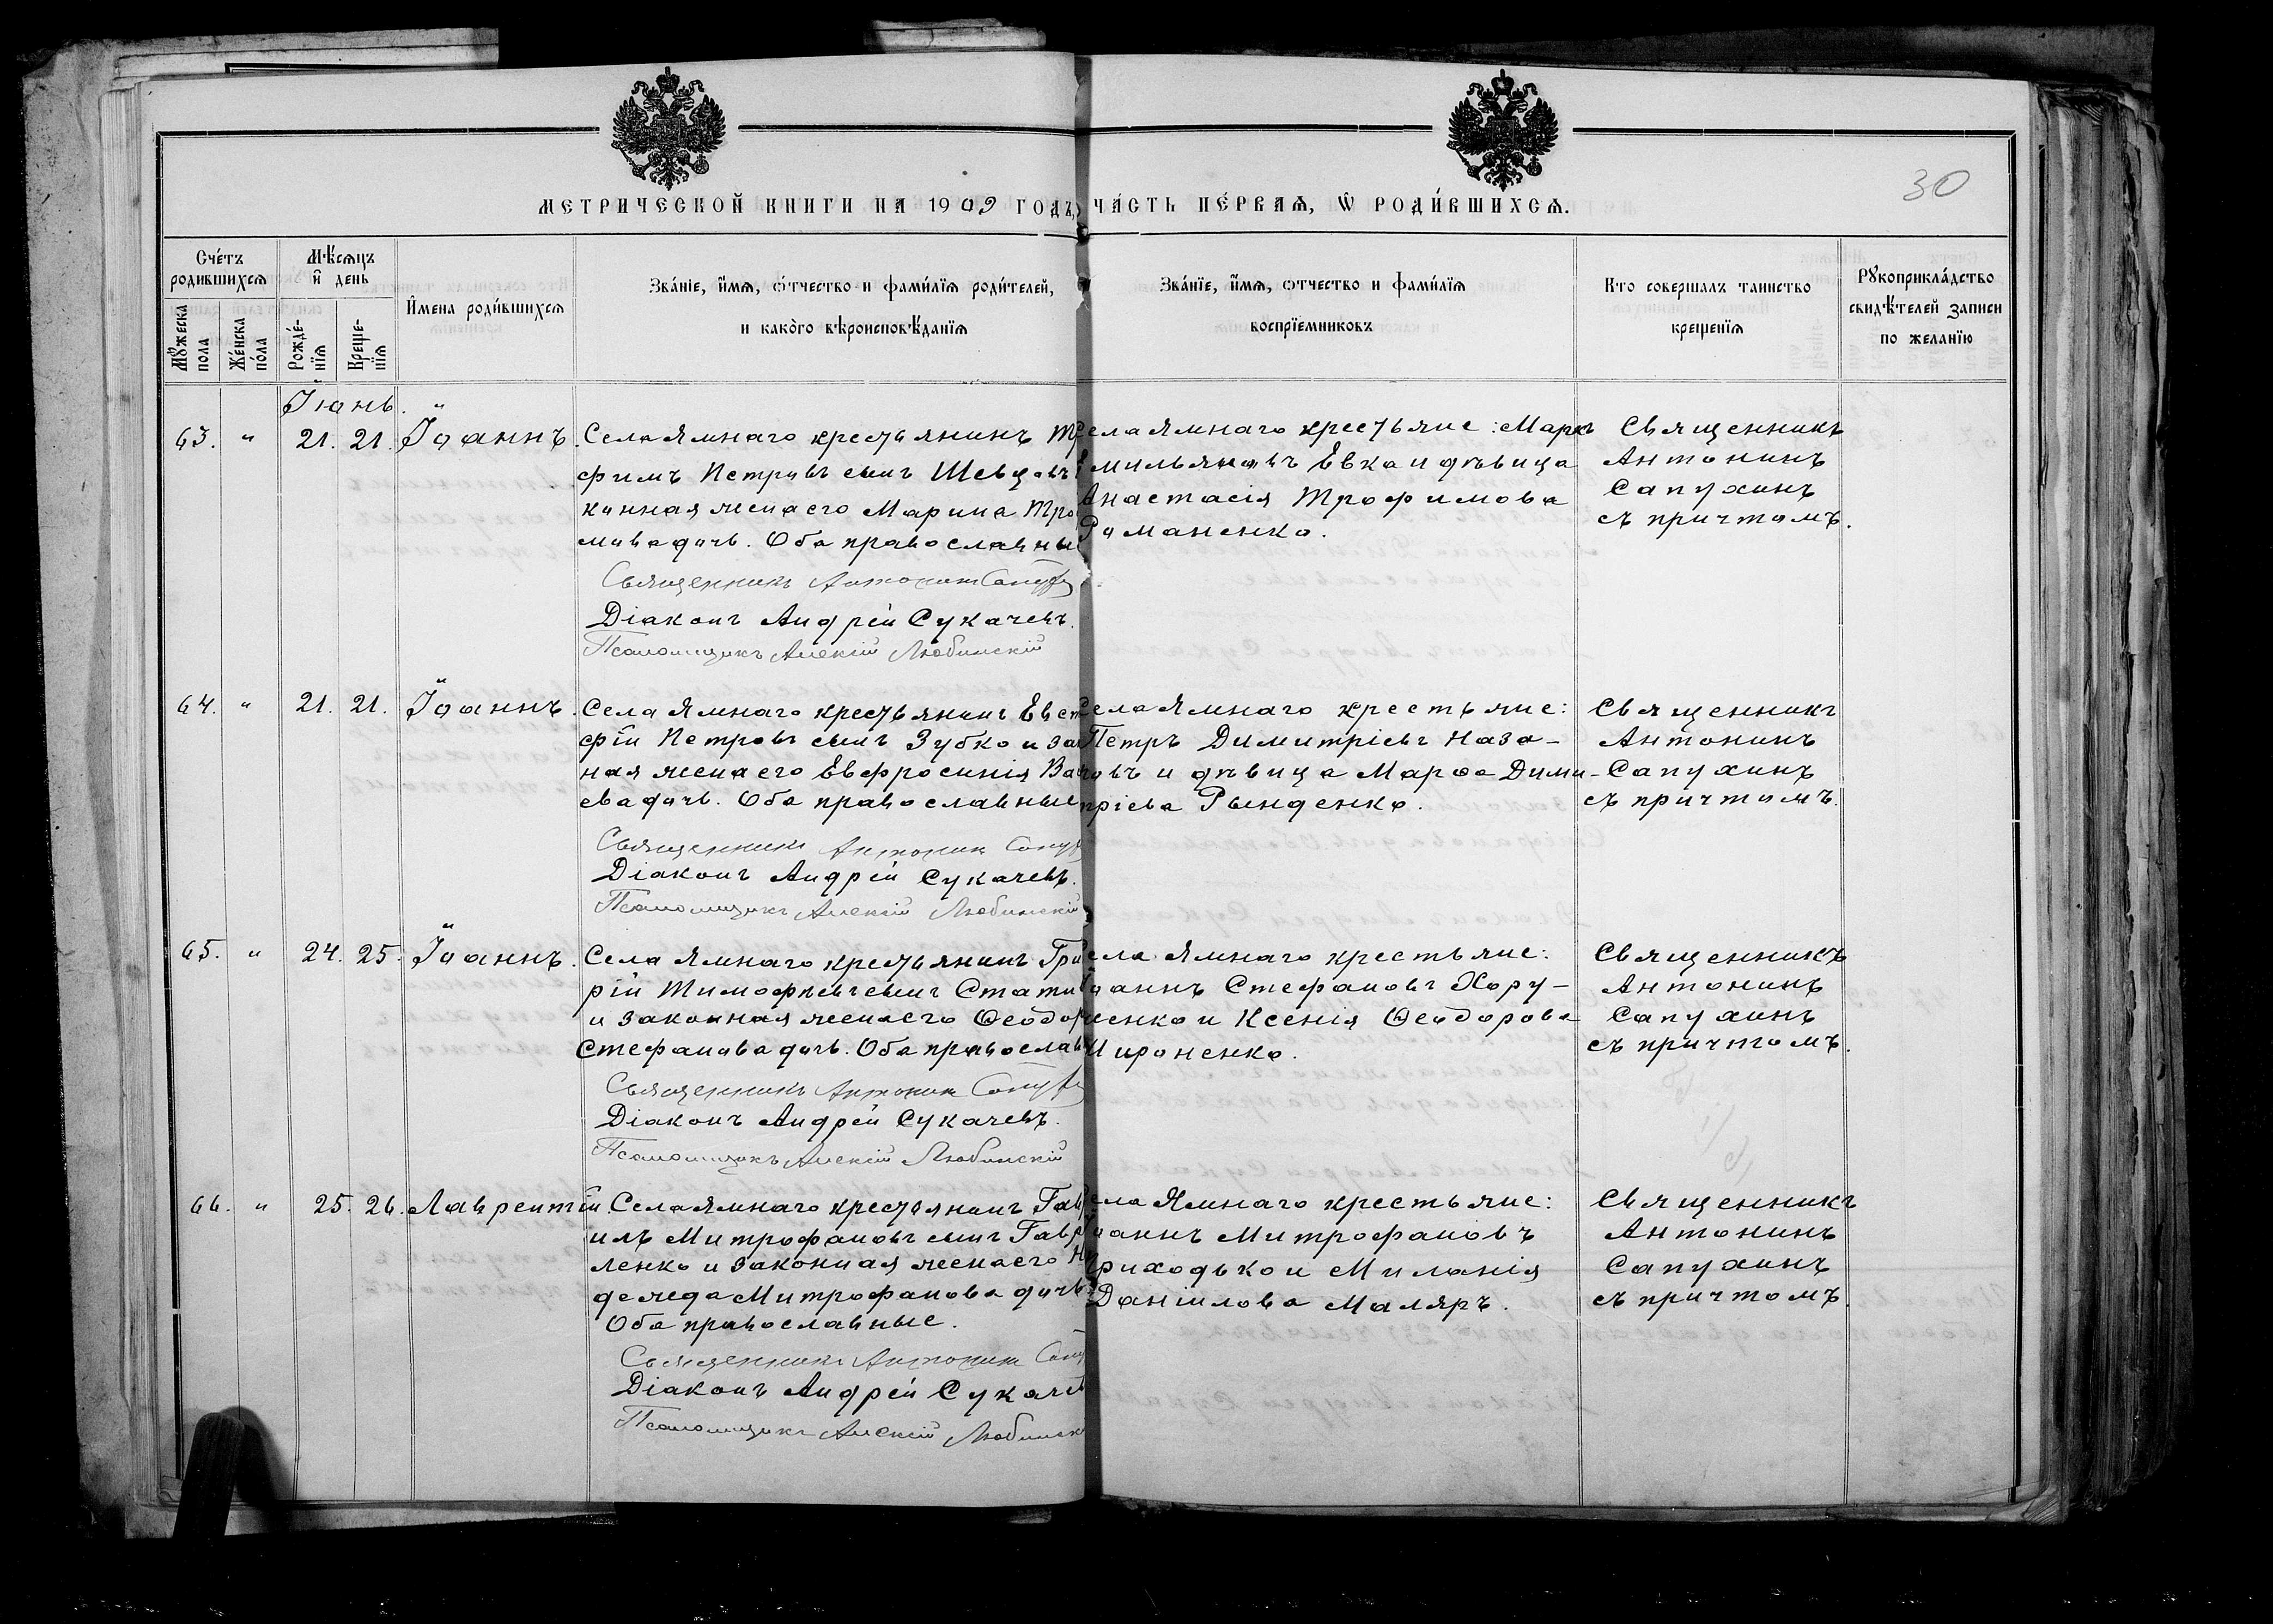 30
МЕТРИЧЕСКОЙ КНИГИ НА 1909 ГОДЪ, ЧА́СТЬ ПЕ́РВАѦ, Ѡ РОДИ́ВШИХСѦ.
Сче́тъ родившихсѧ
Мꙋжеска пола
Же́нска по́ла
Мѣ́сѧцъ и҆ день
Рожде́нїѧ
Креще́нїѧ
И҆мена роди́вшихсѧ
Зва́нїе, и҆́мѧ, ѻ҆́тчество и фами́лїѧ роди́телей,
и како́го вѣроисповѣ́данїѧ
Зва́нїе, и҆́мѧ, ѻтчество и фами́лїѧ
воспрїемниковъ
Кто совершалъ таинство
крещенїѧ
Рꙋкоприкла́дство
свидѣ́телей записи
по желанїю
Іюнь.
63. " 21. 21. Іоаннъ.
Села Ямнаго крестьянинъ Тр
фимъ Петровъ сынъ Шевцовъ
конная жена его Марина Тро
мова дочь. Оба православны
Священникъ Антонин Сапух
Діаконъ Андрей Сукачевъ.
Псаломщикъ Алексій Любинскій
ела Ямнаго крестьяне: Маркъ
Емильяновъ Евка и дѣвица
Анастасія Трофимова
Романенко.
Священникъ
Антонинъ
Сапухинъ
съ причтомъ.
64. " 21. 21. Іоаннъ.
Села Ямнаго крестьянинъ Евст
фій Петровъ сынъ Зубко и за
ная жена его Евфросинія Ва
ева дочь. Оба православные
Священникъ Антонин Сапух
Діаконъ Андрей Сукачевъ.
Псаломщикъ Алексій Любинскій
ела Ямнаго крестьяне:
Петръ Димитріевъ Наза-
овъ и дѣвица Марѳа Дими-
тріева Рынденко.
Священникъ
Антонинъ
Сапухинъ
съ причтомъ.
65. " 24. 25. Іоаннъ.
Села Ямнаго крестьянинъ Гри
рій Тимофѣевъ сынъ Стати
и законная жена его Ѳеодо
Стефанова дочь. Оба православ
Священникъ Антонин Сапух
Діаконъ Андрей Сукачевъ.
Псаломщикъ Алексій Любинскій
ела Ямнаго крестьяне:
оаннъ Стефановъ Хору-
женко и Ксенія Ѳеодорова
Мироненко.
Священникъ
Антонинъ
Сапухинъ
съ причтомъ.
66. " 25. 26. Лаврентій.
Села Ямнаго крестьянинъ Гав
илъ Митрофановъ сынъ Гавр
ленко и законная жена его На
дежда Митрофанова дочь
Оба православные.
Священникъ Антонин Сапу
Діаконъ Андрей Сукаче
Псаломщикъ Алексій Любинск
ела Ямнаго крестьяне:
оаннъ Митрофановъ
Приходько и Миланія
Даніилова Маляръ.
Священникъ
Антонинъ
Сапухинъ
съ причтомъ.